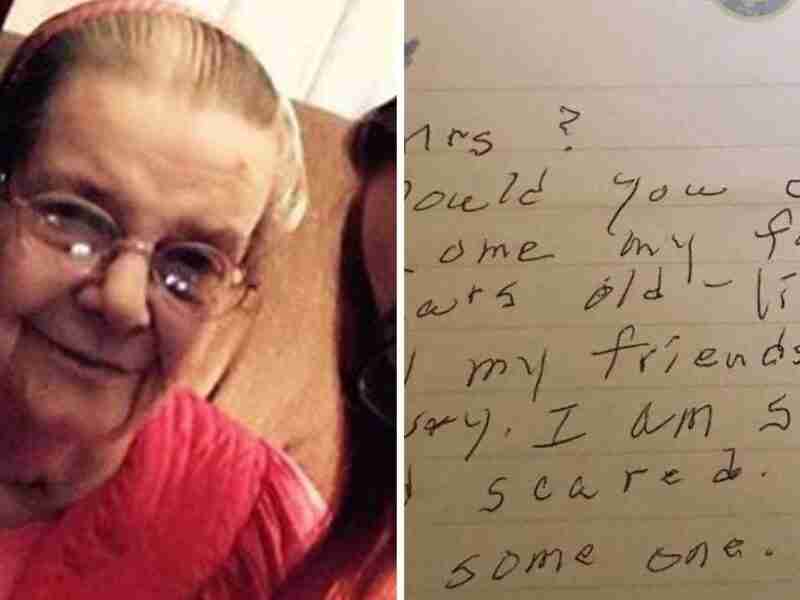 Mrs ?
ould you
ome my f
ars old - li
my friends
I am s
scared.
some one.